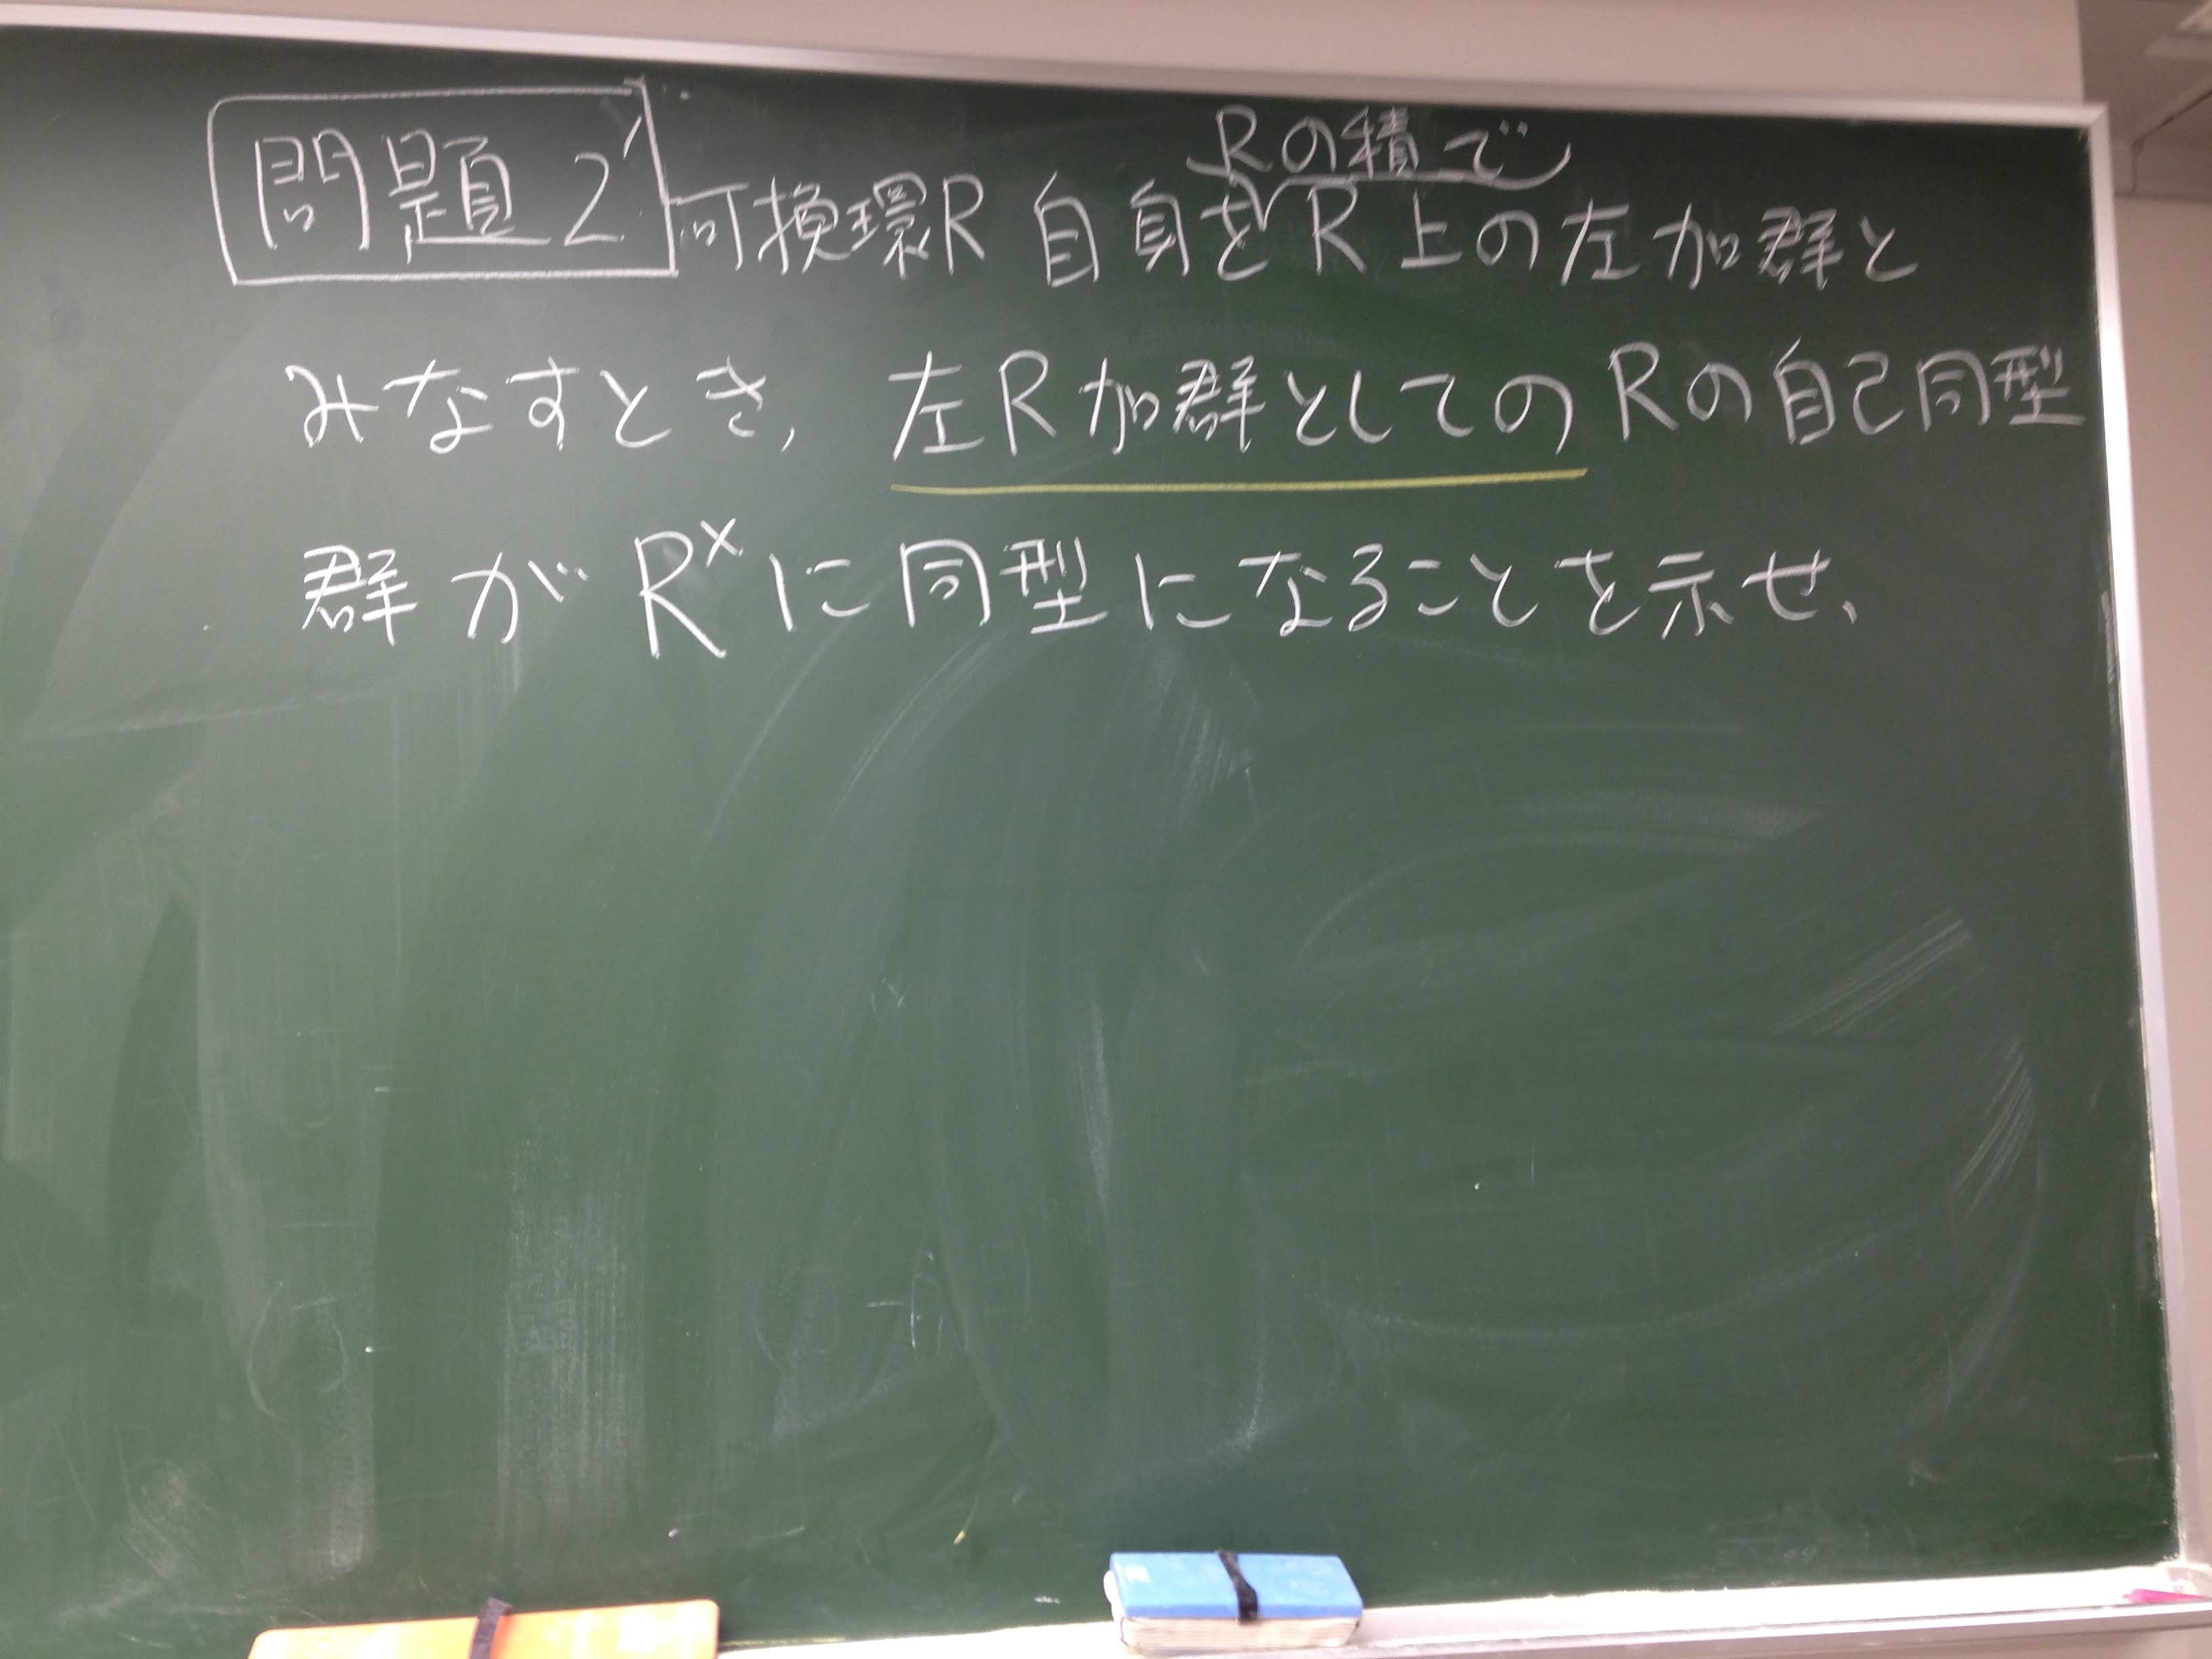 問題2' 可換環R自身をRの積でR上の左加群と
みなすとき, 左R加群としてのRの自己同型
群がR^xに同型になることを示せ、